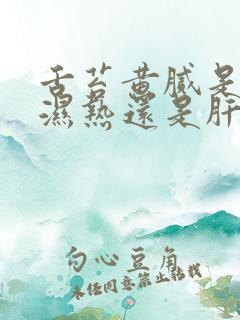 舌苔黄腻是
濕熱還是肝
勾心豆角
未经同意禁止转载